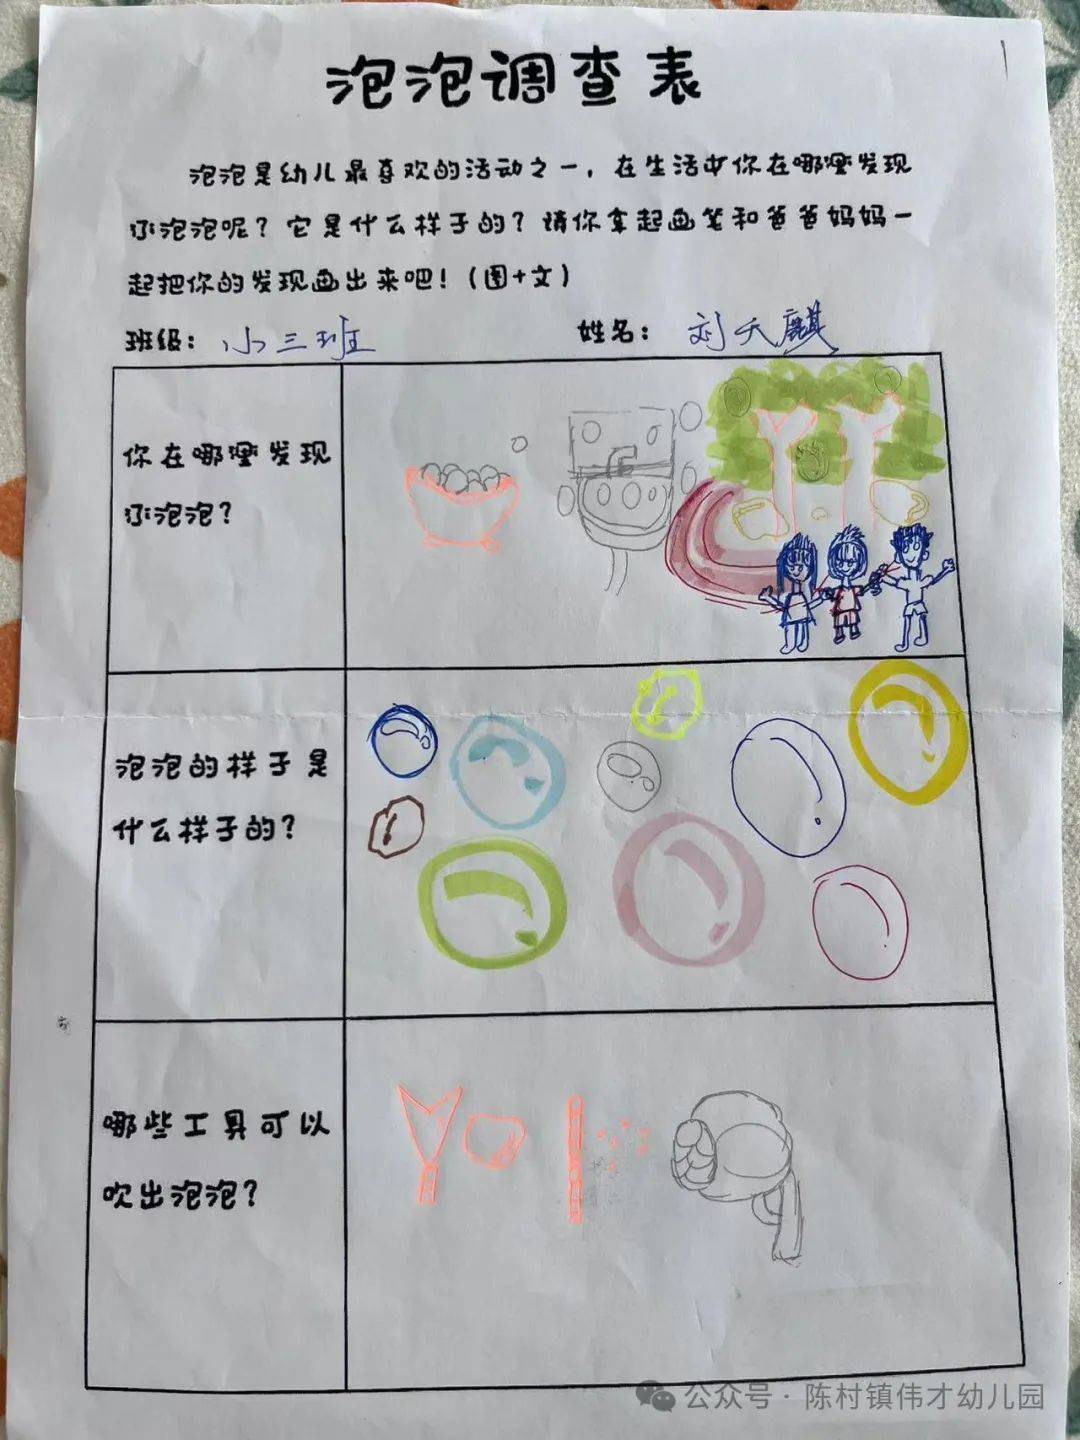 泡泡调查表
泡泡是幼儿最喜欢的活动之一，在生活中你在哪里发现
了泡泡呢？它是什么样子的？请你拿起画笔和爸爸妈妈一
起把你的发现画出来吧！（图+文）
班级：小三班 姓名：刘天麒
你在哪里发现
了泡泡？
泡泡的样子是
什么样子的？
哪些工具可以
吹出泡泡？
公众号·陈村镇伟才幼儿园